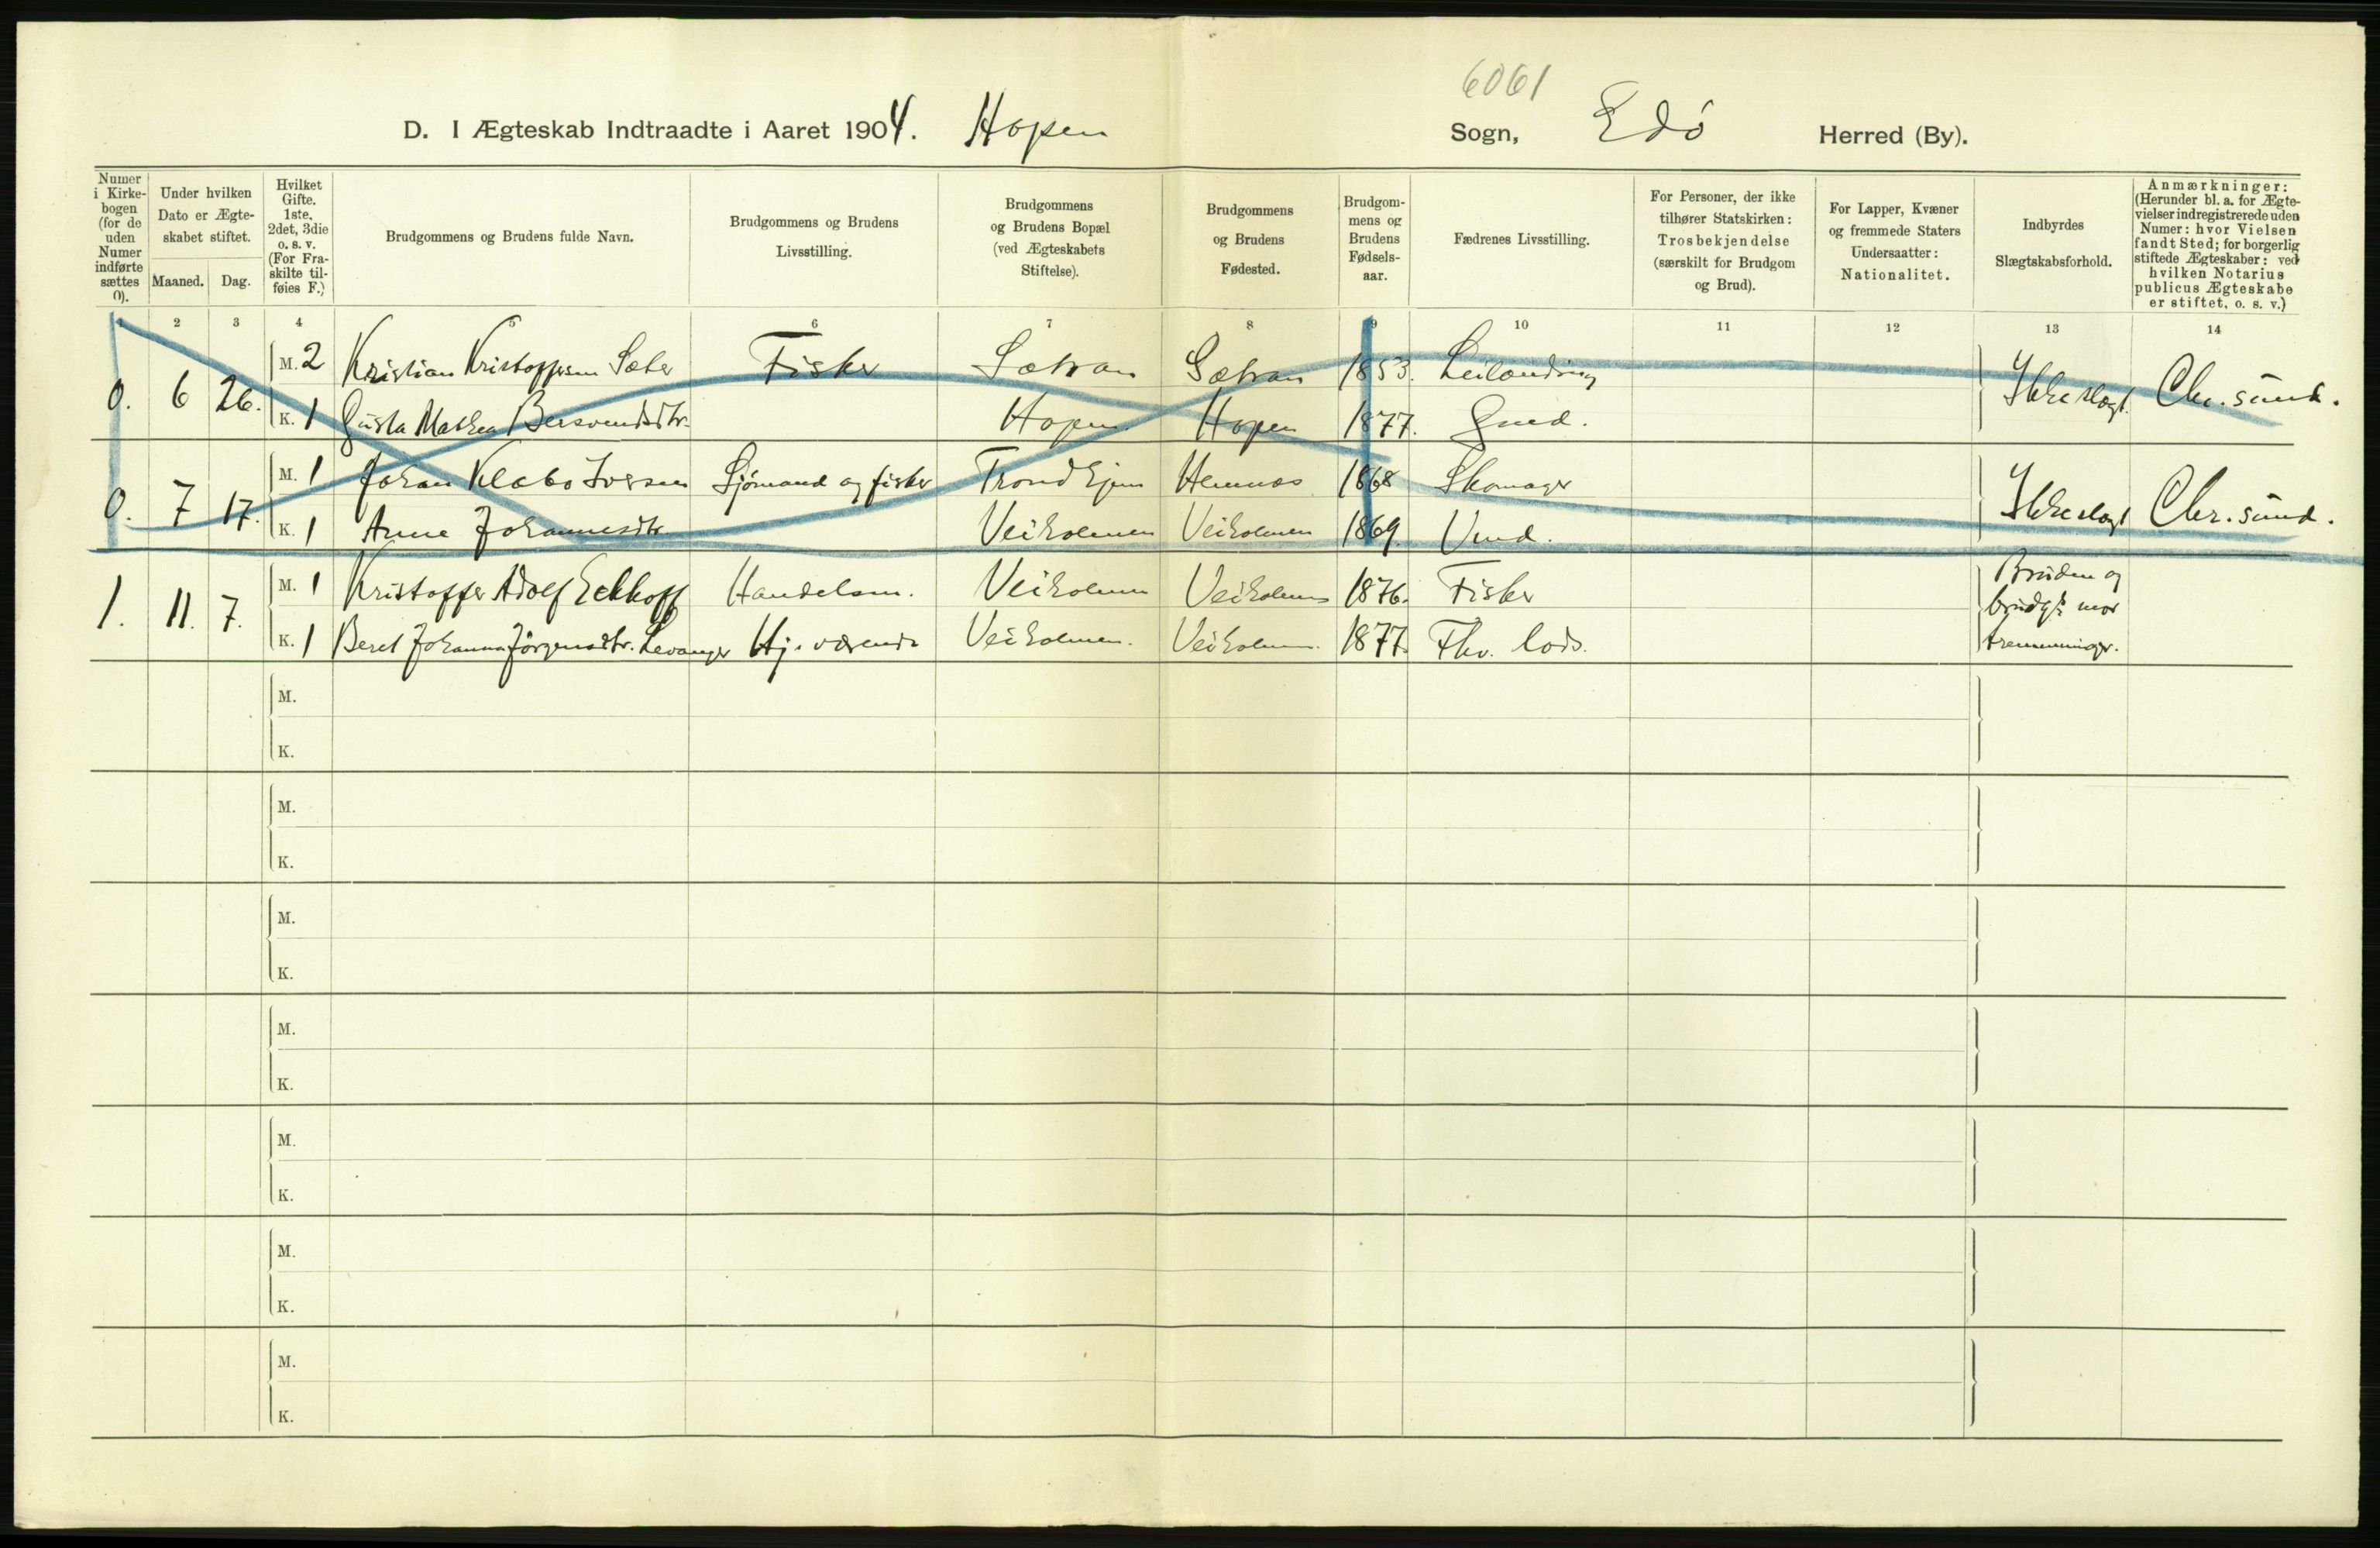 6061
D. I Ægteskab Indtraadte i Aaret 1904. Hopen Sogn, Edö Herred (By).
Numer i Kirkebogen (for de uden Numer indførte sættes 0).
Under hvilken Dato er Ægteskabet stiftet.
Maaned. Dag.
Hvilket Gifte. 1ste, 2det, 3die o. s. v. (For Fraskilte tilføies F.)
Brudgommens og Brudens fulde Navn.
Brudgommens og Brudens Livsstilling.
Brudgommens og Brudens Bopæl (ved Ægteskabets Stiftelse).
Brudgommens og Brudens Fødested.
Brudgommens og Brudens Fødselsaar.
Fædrenes Livsstilling.
For Personer, der ikke tilhører Statskirken: Trosbekjendelse (særskilt for Brudgom og Brud).
For Lapper, Kvæner og fremmede Staters Undersaatter: Nationalitet.
Indbyrdes Slægtskabsforhold.
Anmærkninger: (Herunder bl. a. for Ægtevielser indregistrerede uden Numer: hvor Vielsen fandt Sted; for borgerlig stiftede Ægteskaber: ved hvilken Notarius publicus Ægteskabe er stiftet, o. s. v.)
1 2 3 4 5 6 7 8 9 10 11 12 13 14
0. 6 26. M. 2 Kristian Kristoffersen Sæter Fisker Sætran Sætran 1853. Leilænding Ikke slægt. Chr.sund.
K. 1 Gusta Mathea Bersvendsdtr. Hopen Hopen 1877. Gmd.
0. 7 17. M. 1 Johan Klæbo Iversen Sjömand og fisker Trondhjem Hemnæs 1868 Skomager Ikke slægt Chr.sund.
K. 1 Anne Johannesdtr. Veiholmen Veiholmen 1869.
1. 11. 7. M. 1 Kristoffer Adolf Eckhoff Handelsm. Veiholmen Veiholmen 1876. Fisker Bruden og brudg.s mor tremenninger.
K. 1 Beret Johanna Jörgensdtr. Levanger Hj. værende Veiholmen. Veiholmen. 1877. Fhv. lods.
M.
K.
M.
K.
M.
K.
M.
K.
M.
K.
M.
K.
M.
K.